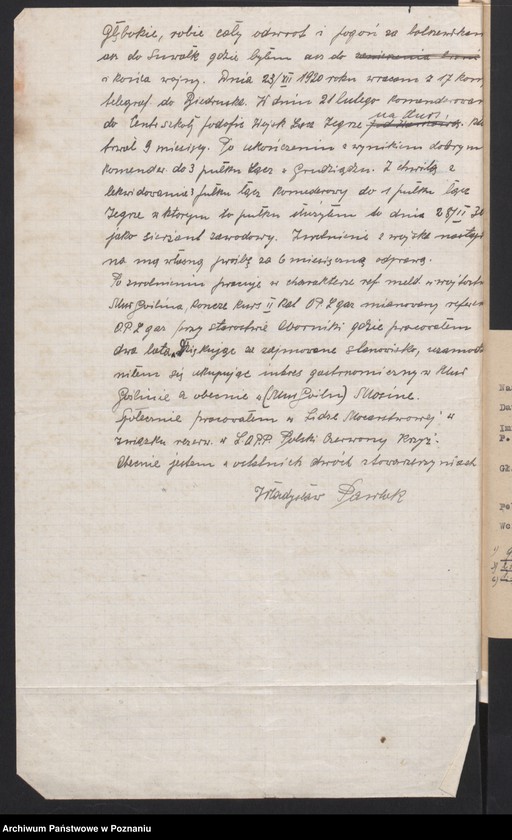 Głębokie, robie cały odwrot i pogoń za bolszewikam
asz do Suwałk gdzie byłem asz do zawieszenia broni
i końca wojny. Dnia 23/VII 1920 roku wracam z 17 komp
telegraf. do Biedruska. W dniu 21 lutego komenderowan
do Centr szkoły podofic Wojsk Łącz Zegrze na kurs.
trwał 9 miesięcy. Po ukończeniu z wynikiem dobrym
komender. do 3 pułku Łącz w Grudziądzu. Z chwilą z
lekwidowania pułku łącz komenderowy do 1 pułku łącz
Zegrze w ktorym to pułku służyłem do dnia 28/II 30
jako sierżant zawodowy. Zwolnienie z wojska nastąpi
na mą własną prośbę za 6 miesięczną odprawą.
Po zwolnieniu pracuję w charakterze ref. meld. w wojtostw
Mur Goślina, kończe kurs II kat OPL gaz mianowany referen
O.P.L gaz przy starostwie Oborniki gdzie pracowałem
dwa lata. Dziękując za zajmowane stanowisko, usamodz
niłem się wkupując interes gastronomiczny w Mur
Goślinie a obecnie w (Mur Goślin) Mosinie.
Społecznie pracowałem w Lidze Mocarstwowej w
związku rezerw. w L.O.P.P. Polski Czerwony Krzyż.
Obecnie jestem w ostatnich dwóch stowarzyszeniach
Władysław Pawlak
Na
Da
Im
P.
Gł
Po
Wo
Archiwum Państwowe w Poznaniu